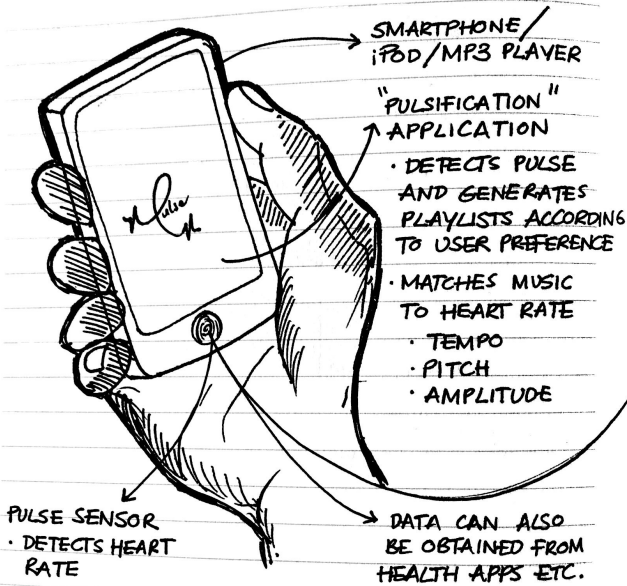 SMARTPHONE/
iPOD/MP3 PLAYER
"PULSIFICATION"
APPLICATION
· DETECTS PULSE
AND GENERATES
PLAYLISTS ACCORDING
TO USER PREFERENCE
· MATCHES MUSIC
TO HEART RATE
· TEMPO
· PITCH
· AMPLITUDE
Pulse
PULSE SENSOR
· DETECTS HEART
RATE
DATA CAN ALSO
BE OBTAINED FROM
HEALTH APPS ETC.